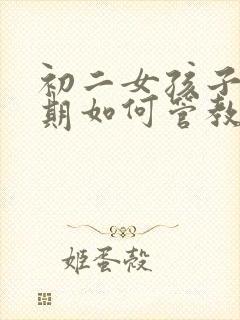 初二女孩子
期如何管教
姬蛋壳